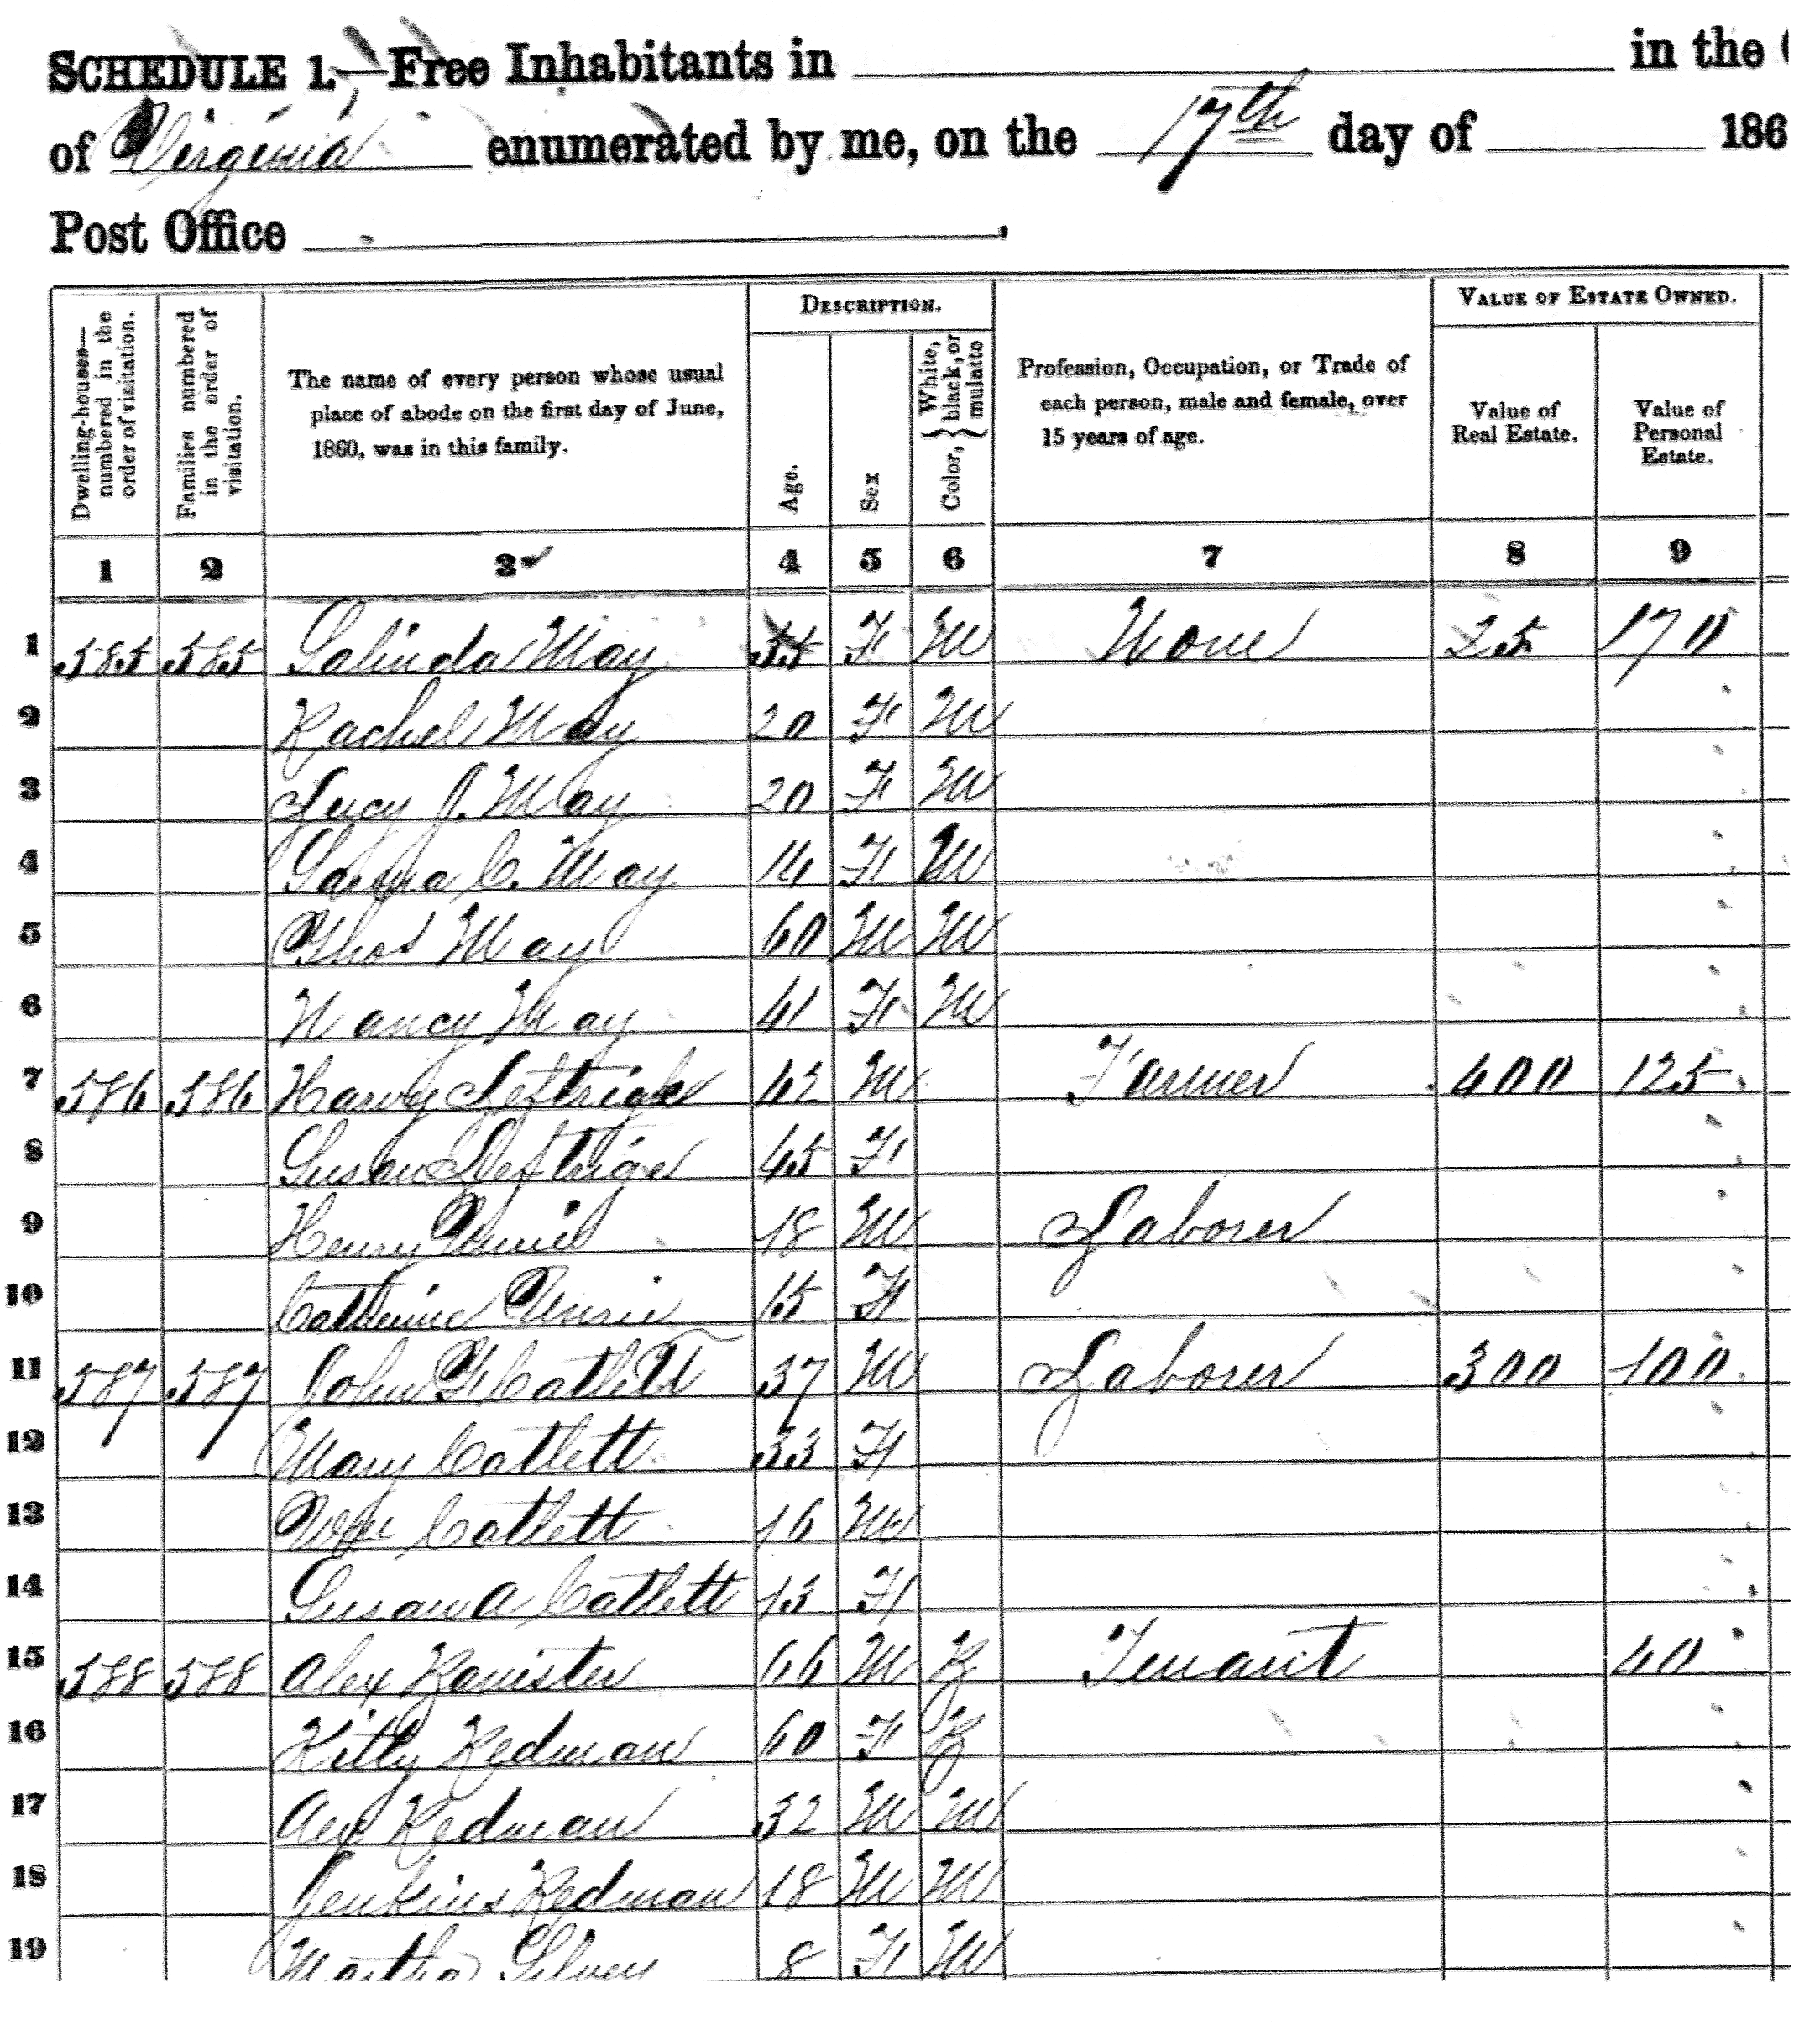 SCHEDULE 1.—Free Inhabitants in in the
of Virginia enumerated by me, on the 17th day of 186
Post Office .
Dwelling-houses—numbered in the order of visitation.
Families numbered in the order of visitation.
The name of every person whose usual place of abode on the first day of June, 1860, was in this family.
DESCRIPTION.
Age.
Sex
Color, { White, black, or mulatto
Profession, Occupation, or Trade of each person, male and female, over 15 years of age.
VALUE OF ESTATE OWNED.
Value of Real Estate.
Value of Personal Estate.
1 2 3 4 5 6 7 8 9
1 585 585 Salinda May F M None 25 170
2 Rachel May 20 F M
3 Lucy J. May 20 F M
4 C. May 14 F M
5 Thos May 60 M M
6 Nancy May 41 F M
7 586 586 Harvy 42 M Farmer 400 125
8 Susan 45 F
9 Henry 18 M Laborer
10 Catherine 15 F
11 587 587 John Catlett 37 M Laborer 300 100
12 Mary Catlett 33 F
13 Wm Catlett 16 M
14 Susan A Catlett 13 F
15 588 588 Alex Banister 66 M B Tenant 40
16 Kitty Redman 60 F B
17 Redman 32 M M
18 Jenkins Redman 18 M M
19 Martha 8 F M